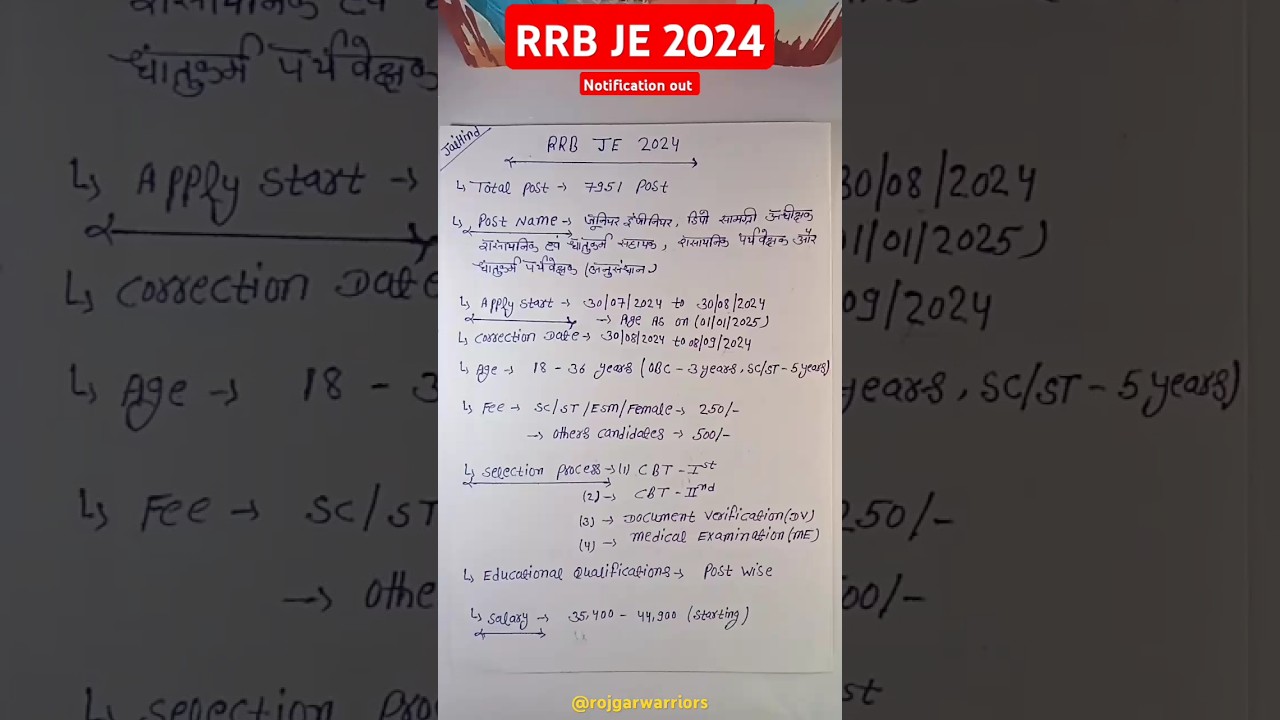 RRB JE 2024
Notification out
JaiHind
RRB JE 2024
↳ Total Post → 7951 Post
↳ Post Name → जूनियर इंजीनियर, डिपो सामग्री अधीक्षक
रासायनिक एवं धातुकर्म सहायक, रासायनिक पर्यवेक्षक और
धातुकर्म पर्यवेक्षक (अनुसंधान)
↳ Apply Start → 30/07/2024 to 30/08/2024
→ Age As on (01/01/2025)
↳ Correction Date → 30/08/2024 to 08/09/2024
↳ Age → 18 - 36 years (OBC - 3 years, SC/ST - 5 years)
↳ Fee → SC/ST/ESM/Female → 250/-
→ Others Candidates → 500/-
↳ Selection Process → (1) CBT - Ist
(2) → CBT - IInd
(3) → Document Verification (DV)
(4) → Medical Examination (ME)
↳ Educational Qualifications → Post Wise
↳ Salary → 35,400 - 44,900 (Starting)
@rojgarwarriors